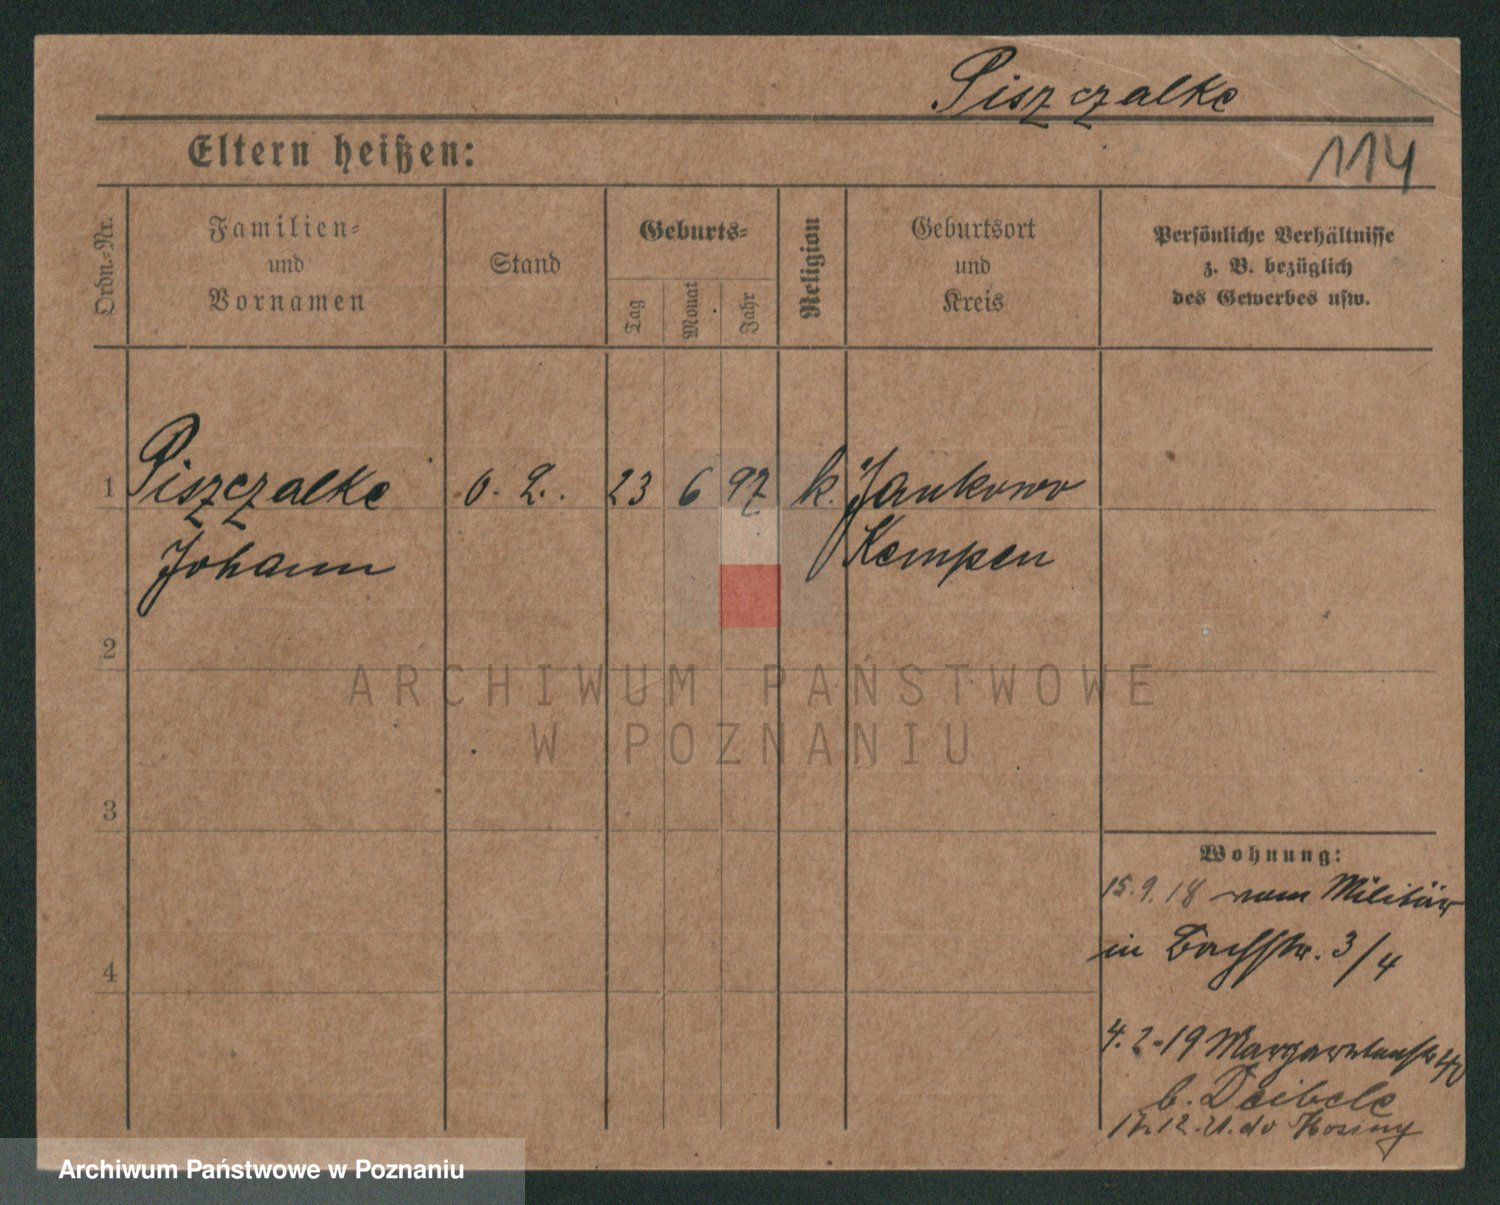 Piszczalke
114
Eltern heißen:
Ordn.-Nr.
Familien-
und
Vornamen
Stand
Geburts-
Tag
Monat
Jahr
Religion
Geburtsort
und
Kreis
Persönliche Verhältnisse
z. B. bezüglich
des Gewerbes usw.
1 Piszczalke 23 6 97 k. Jankowo
Johann Kempen
2
3
4
ARCHIWUM PAŃSTWOWE
W POZNANIU
Wohnung:
15.9.18 vom Militär
in Bachstr. 3/4
4.2-19 Margaretenstr 40
b. Deibele
17.12.21. do
Archiwum Państwowe w Poznaniu